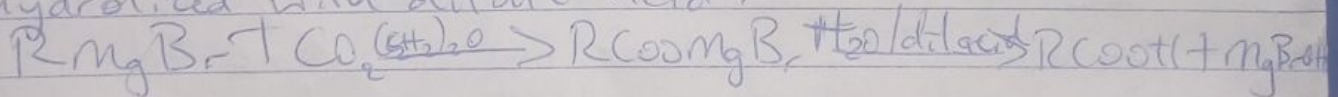 hydrolised with dilute acid.
RMgBr + CO₂ (5H₂)₂O → RCOOMgBr H₂O/dil acid → RCOOH + MgBrOH